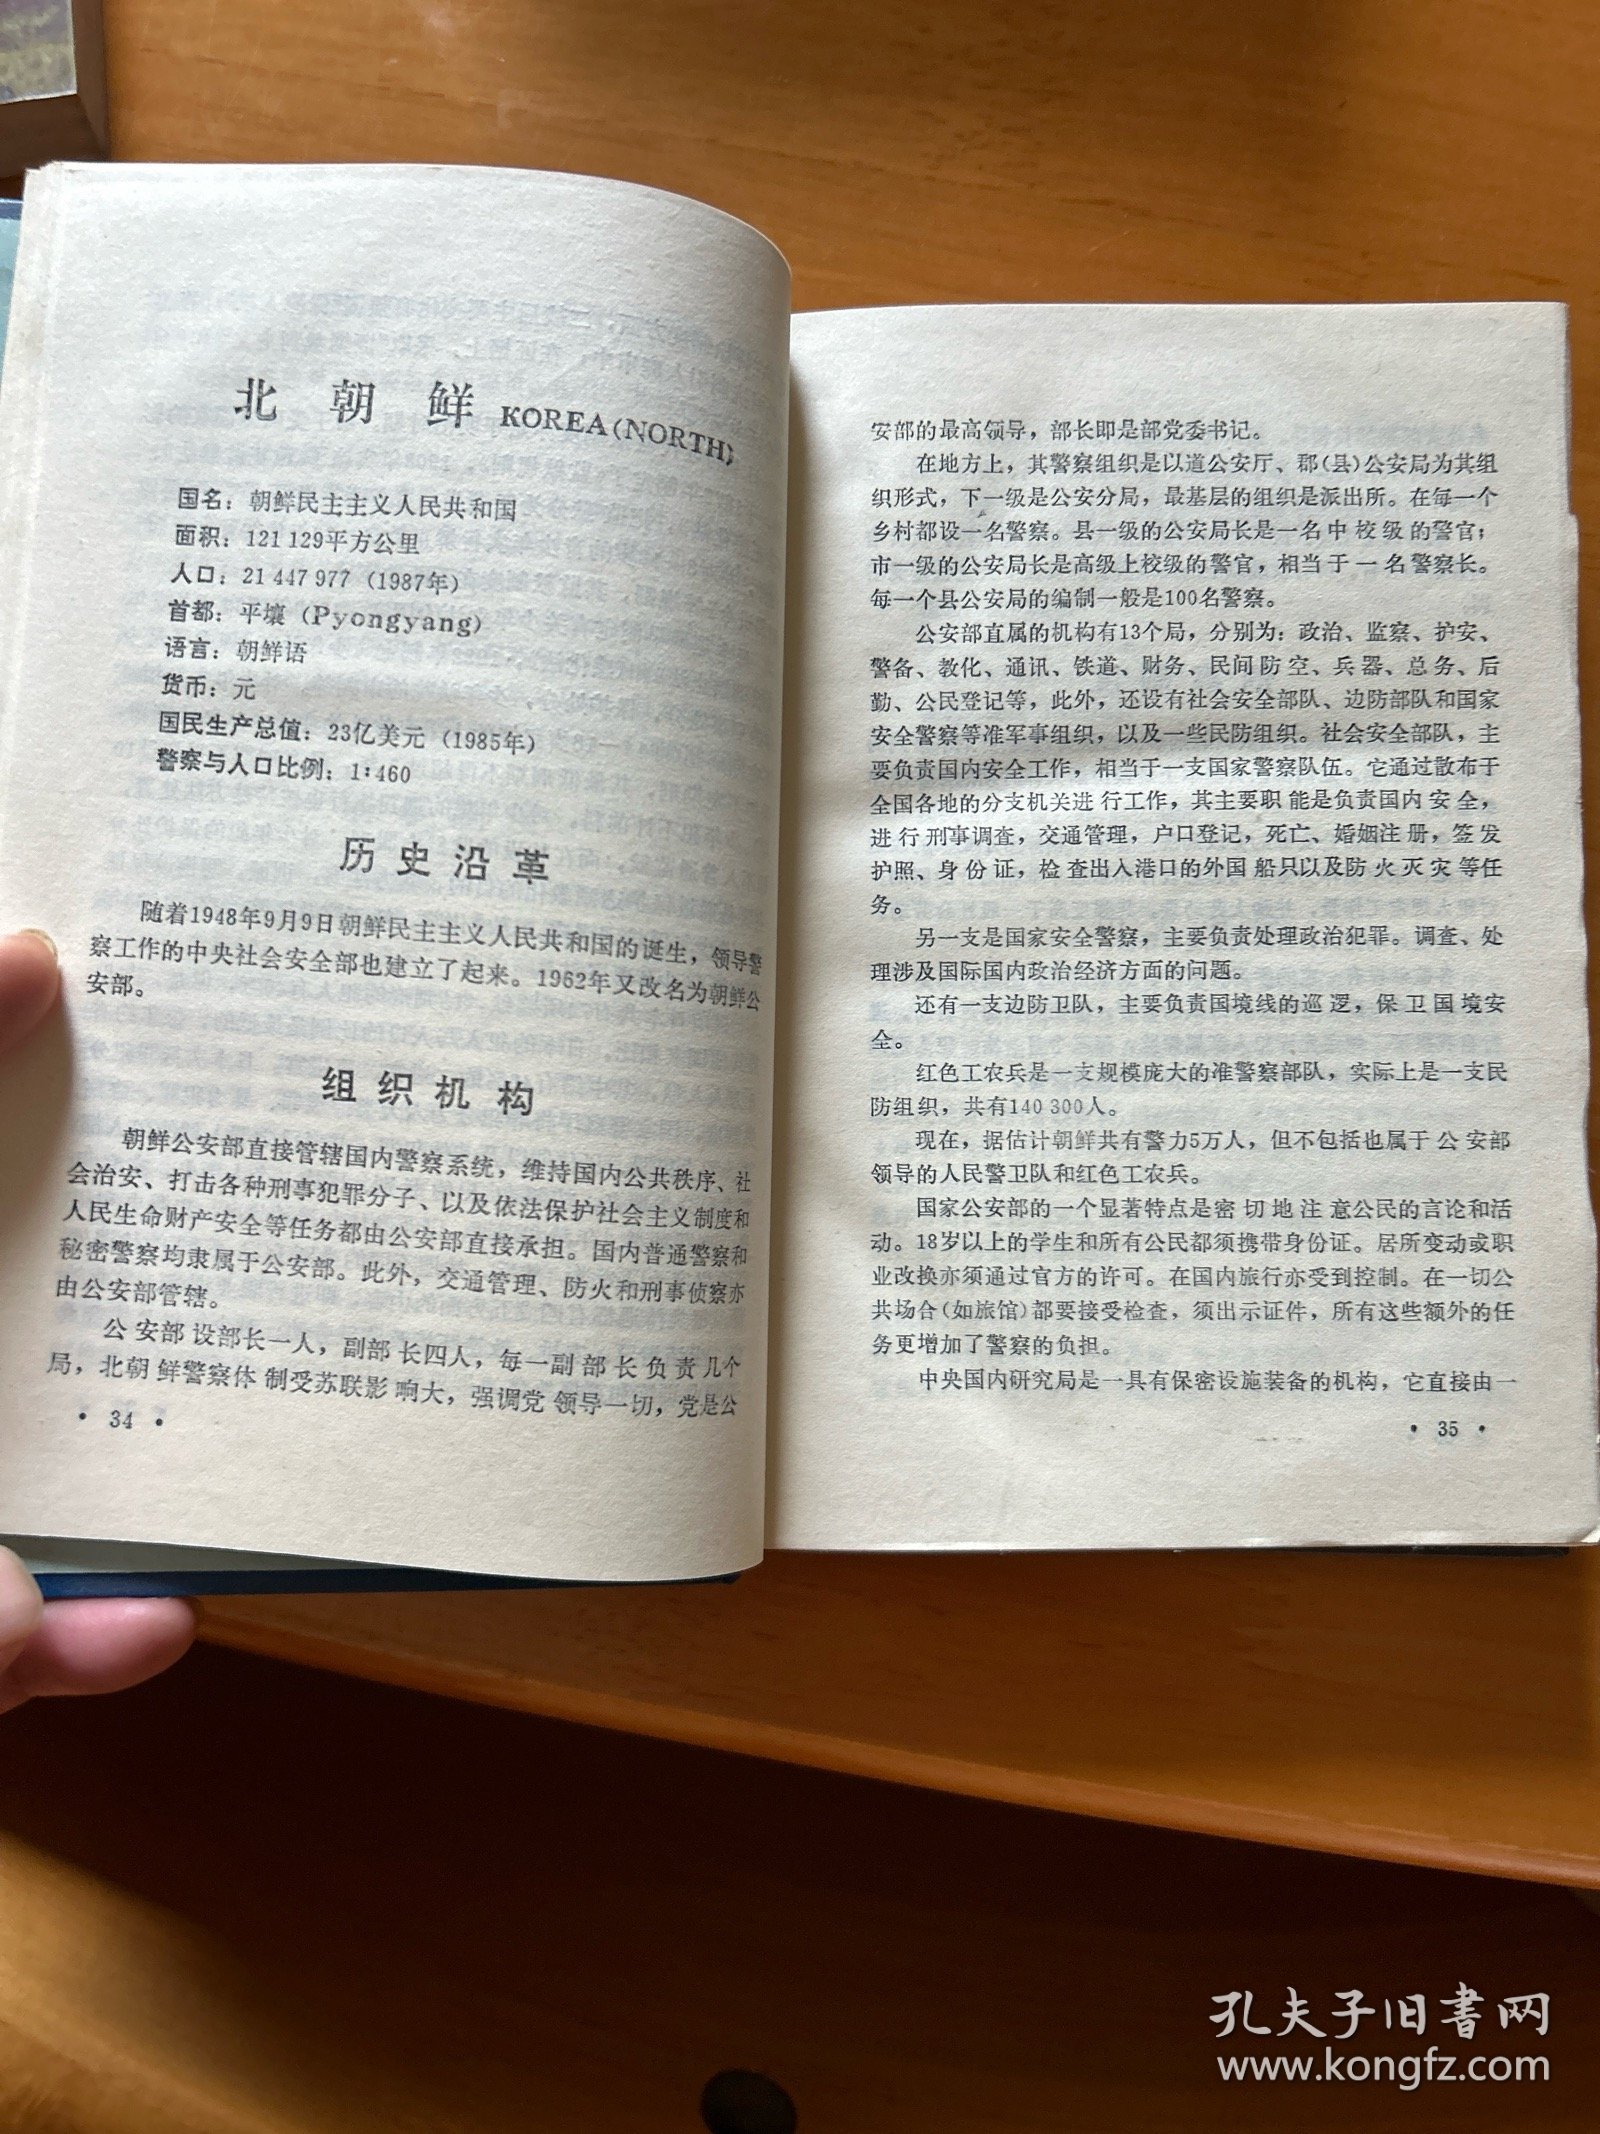 北朝鲜 KOREA(NORTH)
国名：朝鲜民主主义人民共和国
面积：121 129平方公里
人口：21 447 977（1987年）
首都：平壤（Pyongyang）
语言：朝鲜语
货币：元
国民生产总值：23亿美元（1985年）
警察与人口比例：1:460
历史沿革
随着1948年9月9日朝鲜民主主义人民共和国的诞生，领导警
察工作的中央社会安全部也建立了起来。1962年又改名为朝鲜公
安部。
组织机构
朝鲜公安部直接管辖国内警察系统，维持国内公共秩序、社
会治安、打击各种刑事犯罪分子、以及依法保护社会主义制度和
人民生命财产安全等任务都由公安部直接承担。国内普通警察和
秘密警察均隶属于公安部。此外，交通管理、防火和刑事侦察亦
由公安部管辖。
公安部设部长一人，副部长四人，每一副部长负责几个
局，北朝鲜警察体制受苏联影响大，强调党领导一切，党是公
• 34 •
安部的最高领导，部长即是部党委书记。
在地方上，其警察组织是以道公安厅、郡（县）公安局为其组
织形式，下一级是公安分局，最基层的组织是派出所。在每一个
乡村都设一名警察。县一级的公安局长是一名中校级的警官；
市一级的公安局长是高级上校级的警官，相当于一名警察长。
每一个县公安局的编制一般是100名警察。
公安部直属的机构有13个局，分别为：政治、监察、护安、
警备、教化、通讯、铁道、财务、民间防空、兵器、总务、后
勤、公民登记等，此外，还设有社会安全部队、边防部队和国家
安全警察等准军事组织，以及一些民防组织。社会安全部队，主
要负责国内安全工作，相当于一支国家警察队伍。它通过散布于
全国各地的分支机关进行工作，其主要职能是负责国内安全，
进行刑事调查，交通管理，户口登记，死亡、婚姻注册，签发
护照、身份证，检查出入港口的外国船只以及防火灭灾等任
务。
另一支是国家安全警察，主要负责处理政治犯罪。调查、处
理涉及国际国内政治经济方面的问题。
还有一支边防卫队，主要负责国境线的巡逻，保卫国境安
全。
红色工农兵是一支规模庞大的准警察部队，实际上是一支民
防组织，共有140 300人。
现在，据估计朝鲜共有警力5万人，但不包括也属于公安部
领导的人民警卫队和红色工农兵。
国家公安部的一个显著特点是密切地注意公民的言论和活
动。18岁以上的学生和所有公民都须携带身份证。居所变动或职
业改换亦须通过官方的许可。在国内旅行亦受到控制。在一切公
共场合（如旅馆）都要接受检查，须出示证件，所有这些额外的任
务更增加了警察的负担。
中央国内研究局是一具有保密设施装备的机构，它直接由一
• 35 •
孔夫子旧书网
www.kongfz.com